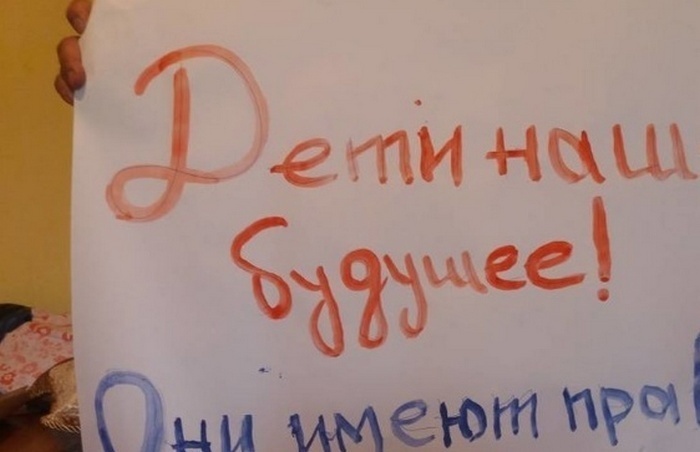 Дети наш
будущее!
Они имеют прав